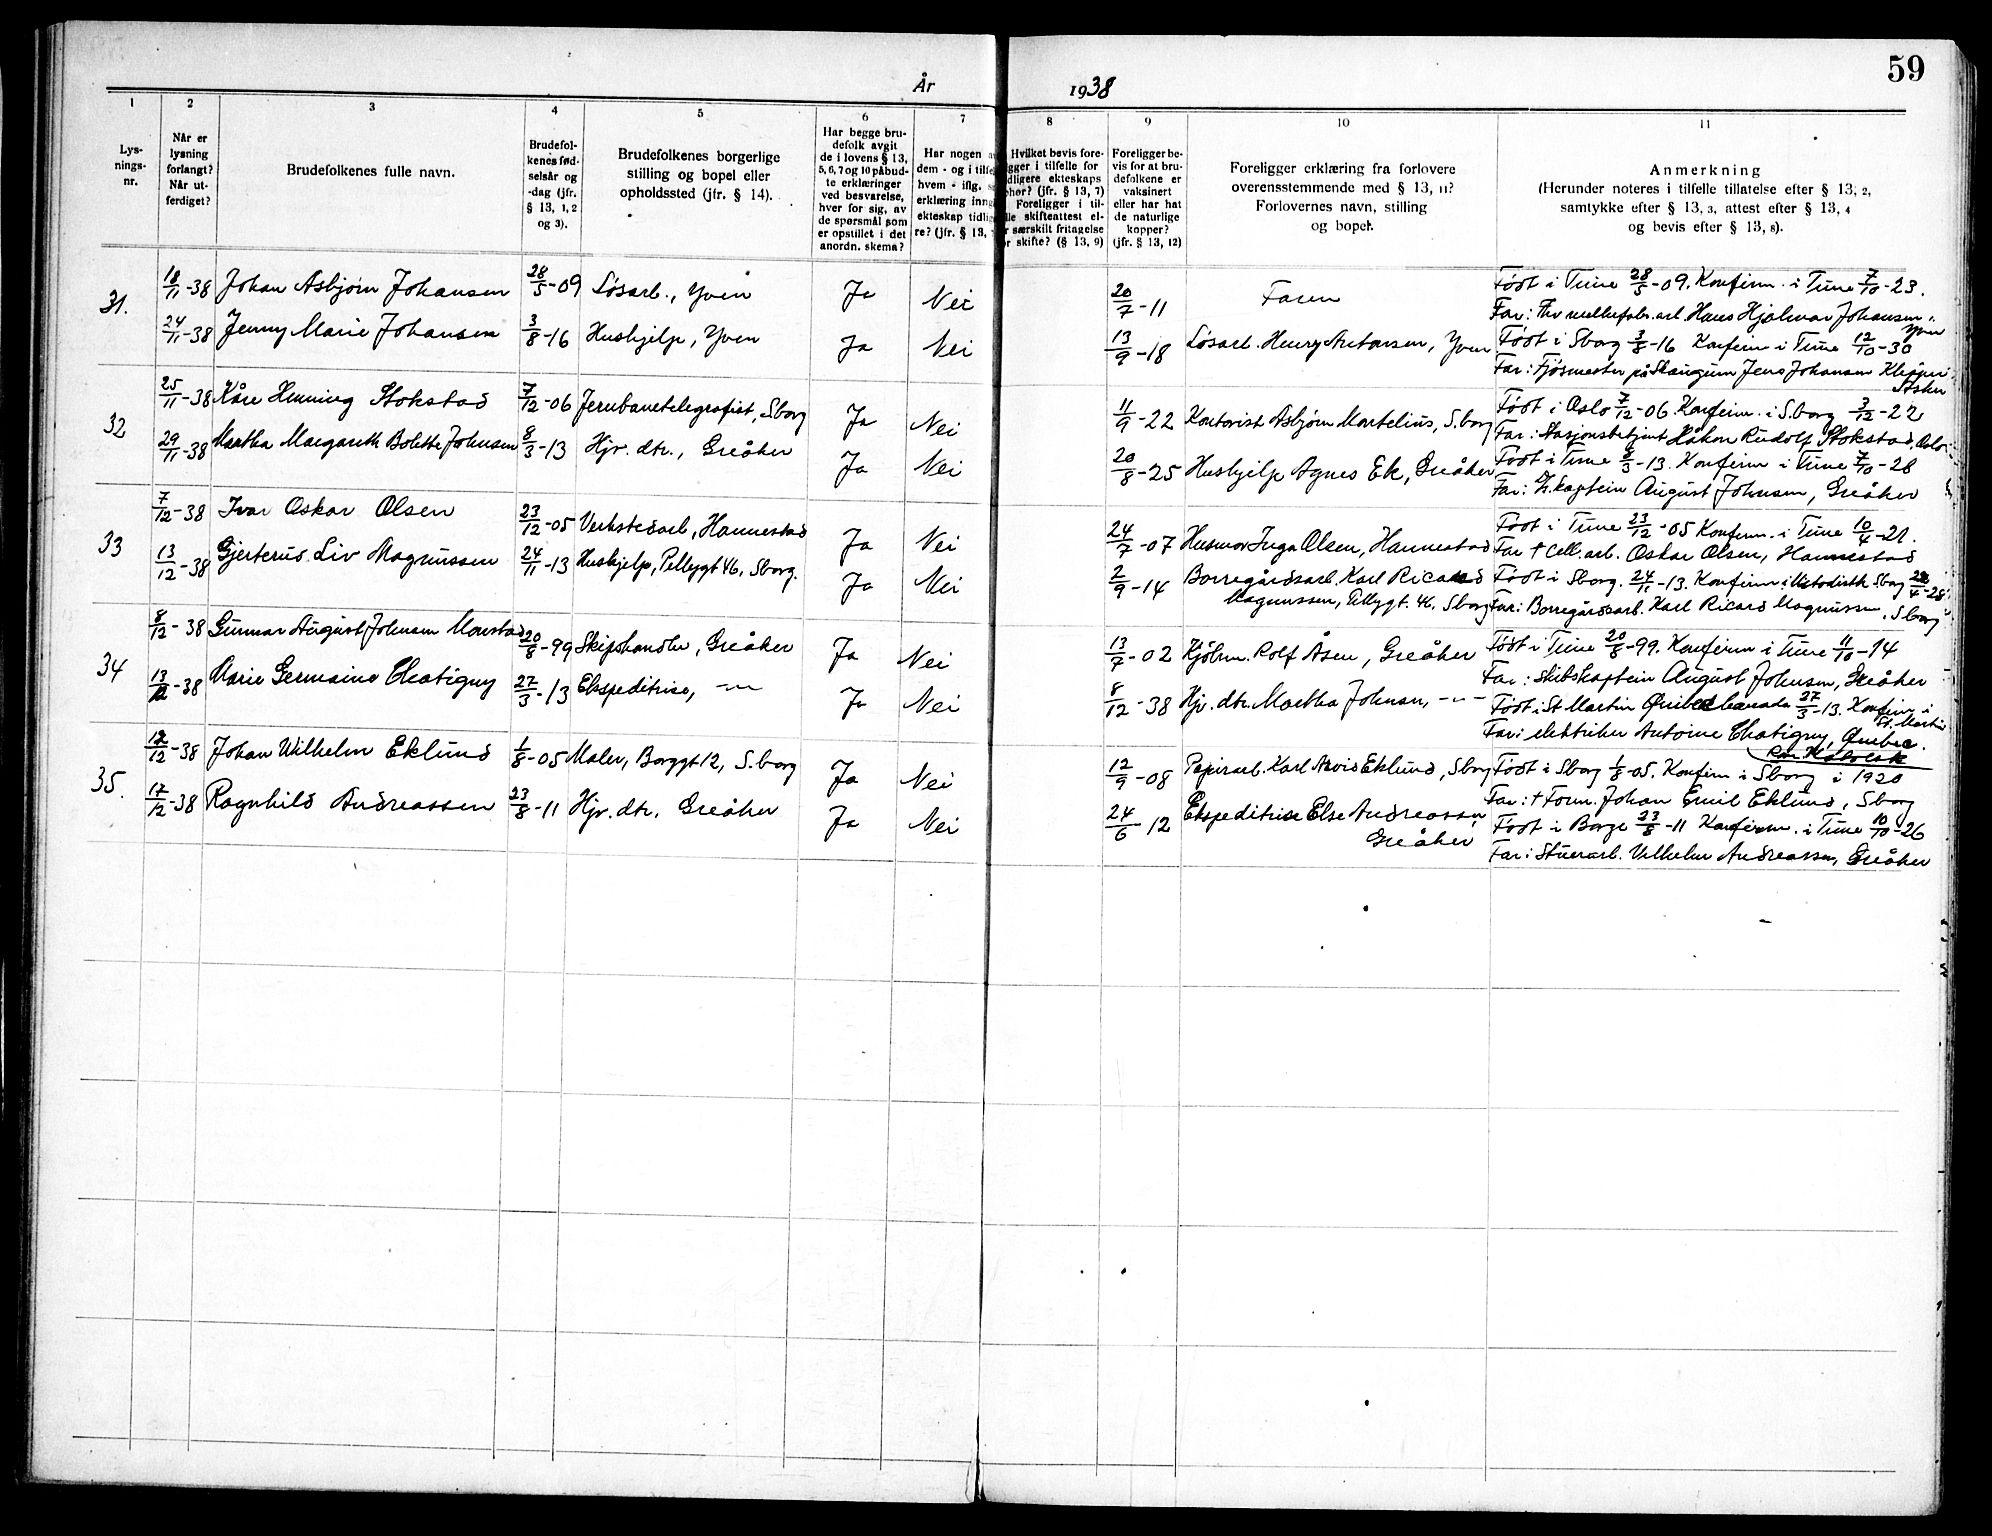 59
År 1938
1 2 3 4 5 6 7 8 9 10 11
Lysnings-
nr.
Når er
lysning
forlangt?
Når ut-
ferdiget?
Brudefolkenes fulle navn.
Brudefol-
kenes fød-
selsår og
-dag (jfr.
§ 13, 1, 2
og 3).
Brudefolkenes borgerlige
stilling og bopel eller
opholdssted (jfr. § 14).
Har begge bru-
defolk avgit
de i lovens § 13,
5, 6, 7 og 10 påbud-
te erklæringer
ved besvarelse,
hver for sig, av
de spørsmål som
er opstillet i det
anordn. skema?
Har nogen
dem - og i tilfe
hvem - iflg.
erklæring inng
ekteskap tidlig
re? (jfr. § 13,
Hvilket bevis fore-
gger i tilfelle for
dligere ekteskaps
phør? (jfr. § 13, 7)
Foreligger i til-
lle skifteattest el-
r særskilt fritagelse
r skifte? (§ 13, 9)
Foreligger be-
vis for at bru-
defolkene er
vaksinert
eller har hat
de naturlige
kopper?
(jfr. § 13, 12)
Foreligger erklæring fra forlovere
overensstemmende med § 13, 11?
Forlovernes navn, stilling
og bopel.
Anmerkning
(Herunder noteres i tilfelle tillatelse efter § 13, 2,
samtykke efter § 13, 3, attest efter § 13, 4
og bevis efter § 13, 8).
31. 18/11-38 Johan Asbjørn Johansen 28/5-09 Løsarb., Yven Ja Nei 20/7-11 Faren Født i Tune 28/5-09. Konfirm. i Tune 7/10-23.
Far: Hans Hjalmar Johansen, Yven
24/11-38 Jenny Marie Johansen 3/8-16 Hushjelp, Yven Ja Nei 13/9-18 Løsarb. Henry Antonsen, Yven Født i Sborg 3/8-16 Konfirm i Tune 12/10-30
Far: Fjøsmester på Skaugum Jens Johansen Asker
32 25/11-38 Kåre Henning Stokstad 7/12-06 Jernbanetelegrafist, Sborg Ja Nei 11/9-22 Kontorist Asbjørn Martelius, S.borg Født i Oslo 7/12-06. Konfirm. i S.borg 3/12-22
Far: Stasjonsbetjent Håkon Rudolf Stokstad, Oslo
29/11-38 Martha Margareth Bolette Johnsen 8/3-13 Hjv. dtr., Greåker Ja Nei 20/8-25 Hushjelp Agnes Ek, Greåker Født i Tune 8/3-13. Konfirm i Tune 7/10-28
Far: kaptein August Johnsen, Greåker
33 7/12-38 Ivar Oskar Olsen 23/12-05 Verkstedarb, Hannestad Ja Nei 24/7-07 Husmor Inga Olsen, Hannestad Født i Tune 23/12-05 Konfirm. i Tune 10/4-21.
Far † Cell. arb. Oskar Olsen, Hannestad
13/12-38 Gjerterud Liv Magnussen 24/11-13 Hushjelp, Pellygt 46, Sborg. Ja Nei 2/9-14 Borregårdsarb. Karl Ricard
Magnussen, Pellygt. 46, Sborg Født i Sborg. 24/11-13. Konfirm i Metodistk Sborg 22/4-28
Far: Borregårdsarb. Karl Ricard Magnussen, Sborg
34 8/12-38 Gunnar August Johnsen Monstad 20/8-99 Skipshandler, Greåker Ja Nei 13/7-02 Kjøbm. Rolf Åsen, Greåker Født i Tune 20/8-99. Konfirm i Tune 11/10-14
Far: Skibskaptein August Johnsen, Greåker
13/12-38 Marie Germaine Chatigny 27/3-13 Ekspeditrise, -"- Ja Nei 8/12-38 Hjv. dtr. Martha Johnsen, -"- Født i St Martin Quebec Canada 27/3-13. Konfirm i St. Martin
Far: elektriker Antoine Chatigny, Quebec.
Rom. Katolsk
35. 12/12-38 Johan Wilhelm Eklund 1/8-05 Maler, Borggt 12, S.borg Ja Nei 12/9-08 Papirarb. Karl Arvid Eklund, Sborg Født i Sborg 1/8-05. Konfirm i Sborg i 1920
Far: † Form. Johan Emil Eklund, Sborg
17/12-38 Ragnhild Andreassen 23/8-11 Hjv. dtr. Greåker Ja Nei 24/6-12 Ekspeditrise Else Andreassen,
Greåker Født i Borge 23/8-11 Konfirm. i Tune 10/10-26
Far: Stuerarb. Vilhelm Andreassen, Greåker